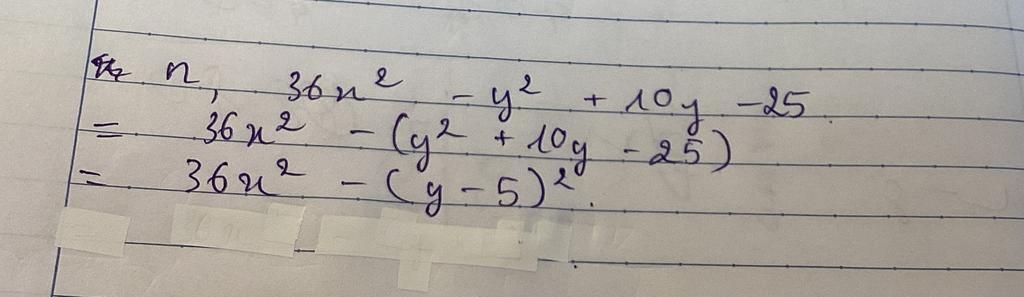 n, 36x² - y² + 10y - 25
= 36x² - (y² + 10y - 25)
= 36x² - (y - 5)².